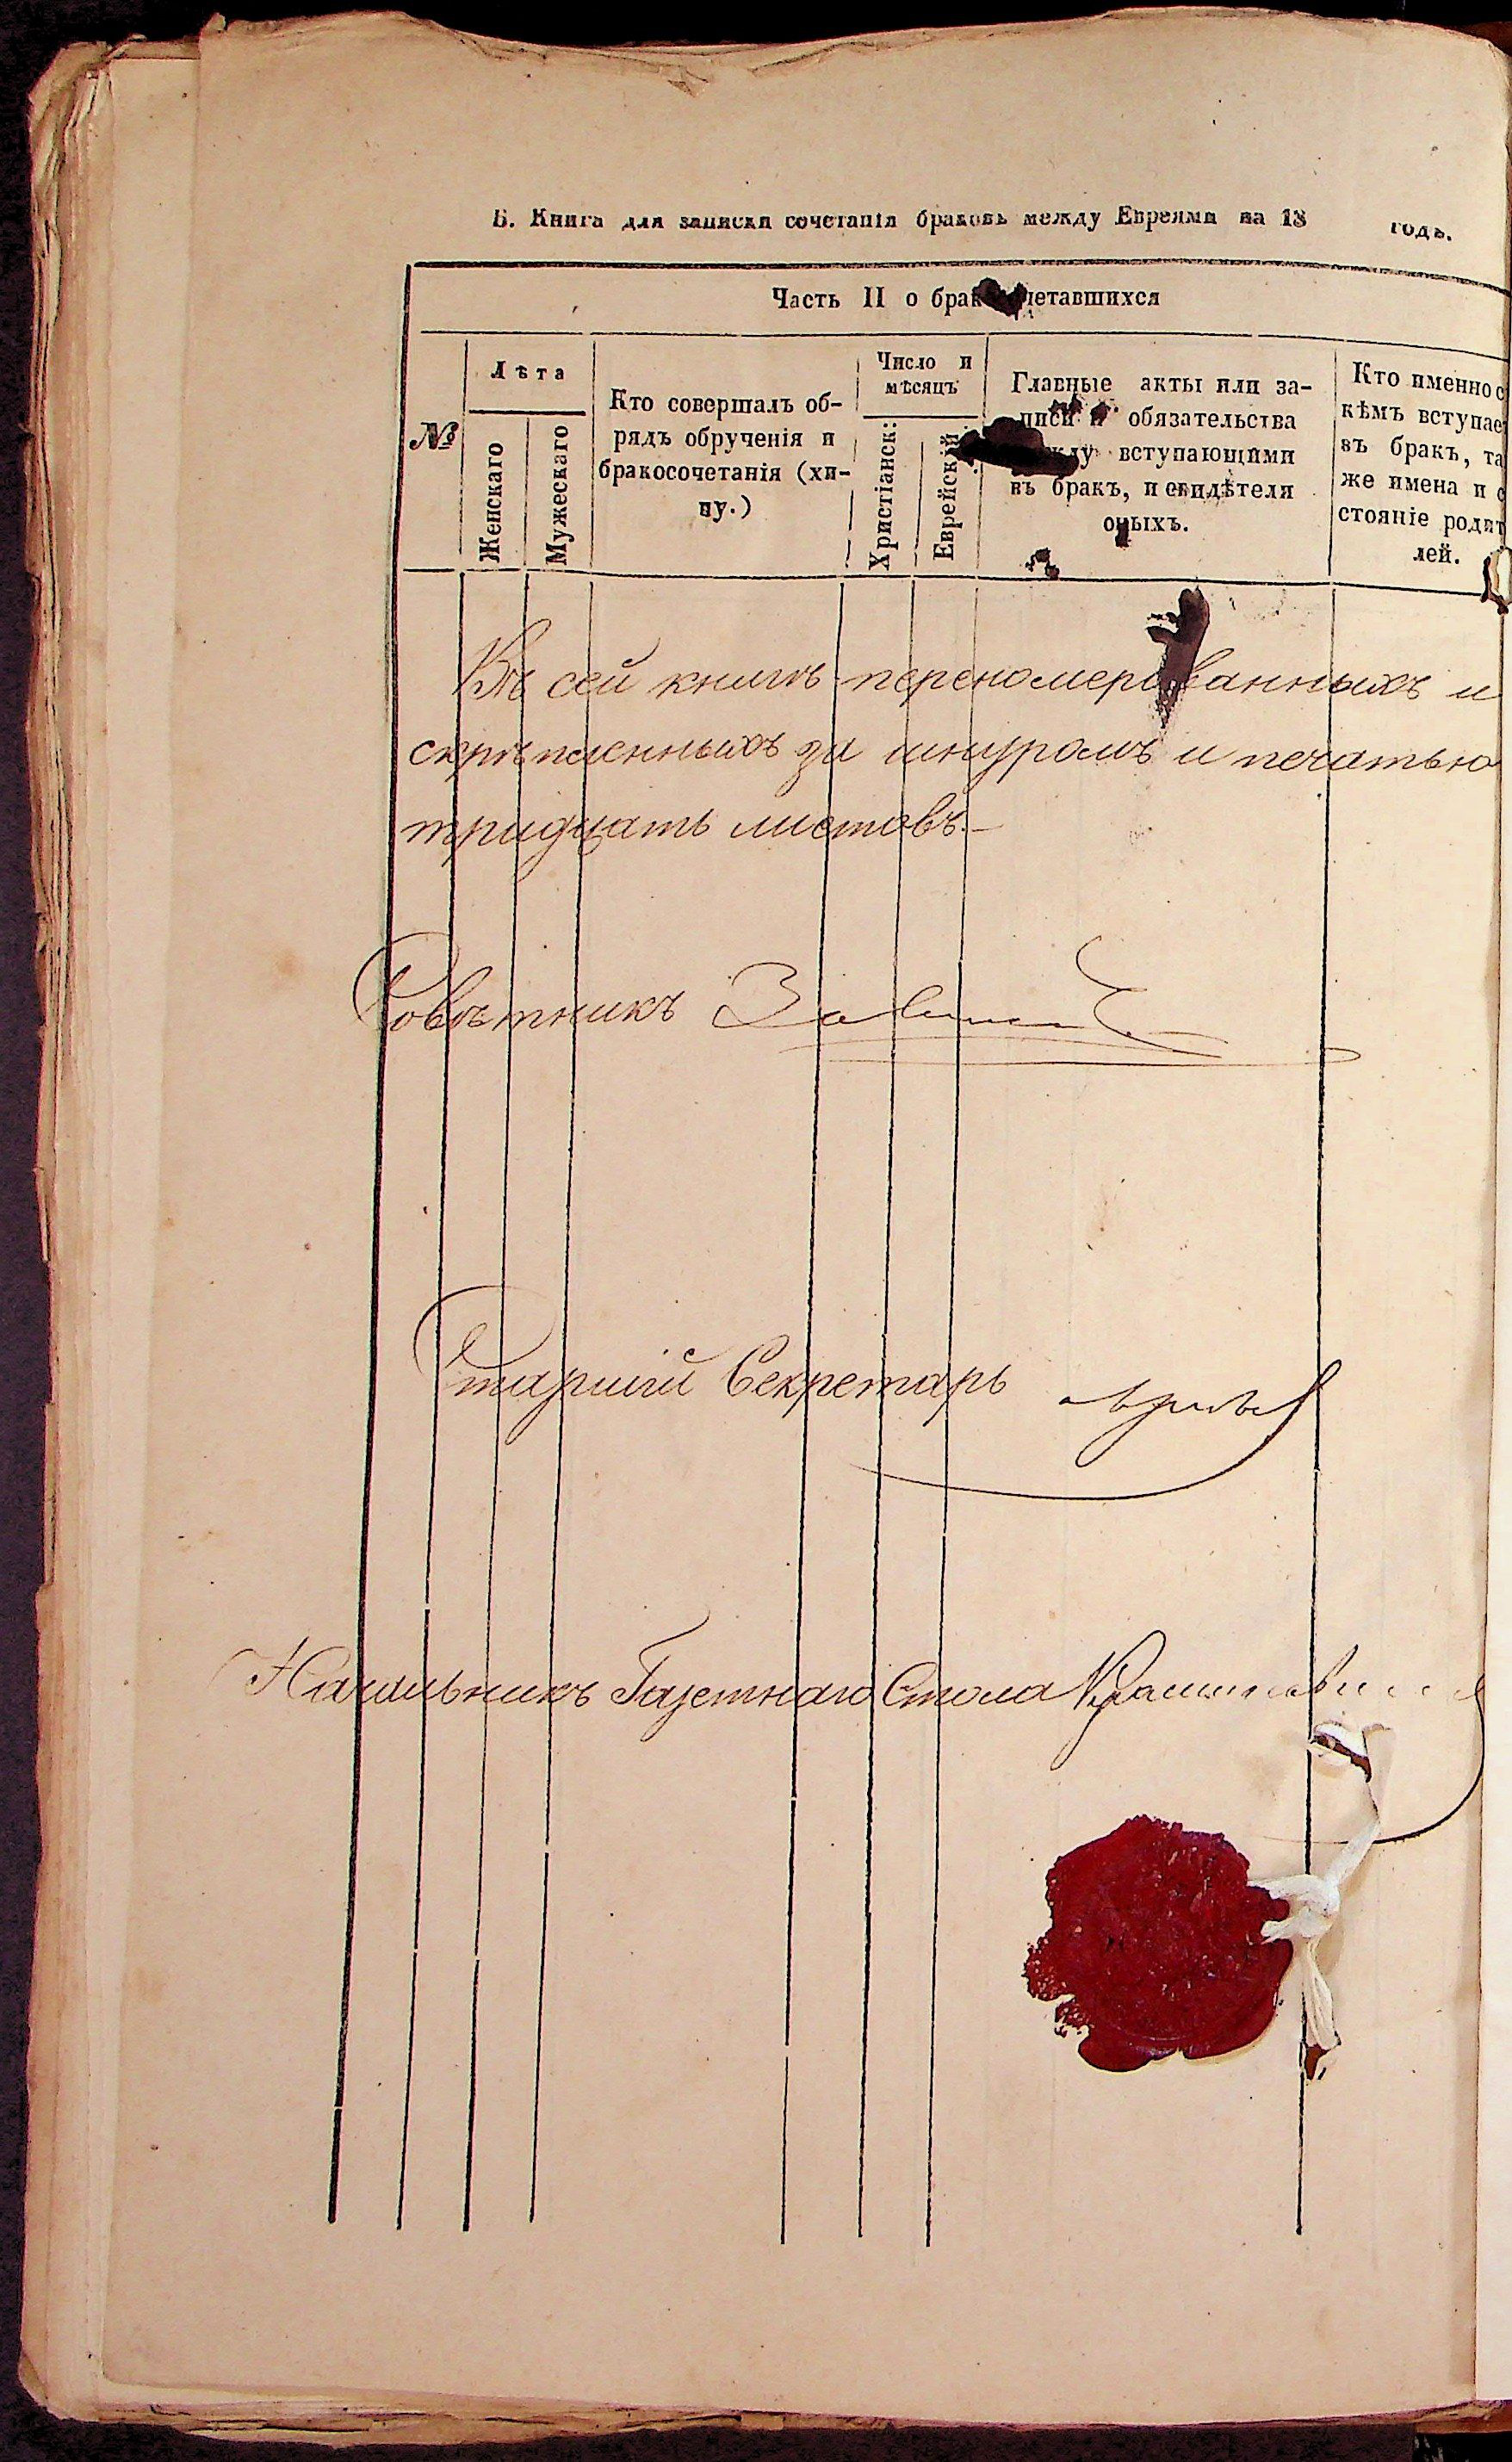 Б. Книга для записки сочетанія браковъ между Евреями на 18 годъ.
Часть II о бракосочетавшихся
№
Лѣта
Женскаго
Мужескаго
Кто совершалъ об-
рядъ обрученія и
бракосочетанія (хи-
пу.)
Число и
мѣсяцъ
Христіанск:
Еврейскій.
Главные акты или за-
писи и обязательства
между вступающими
въ бракъ, и свидѣтели
оныхъ.
Кто именно с
кѣмъ вступае
въ бракъ, та
же имена и с
стояніе родит
лей.
Въ сей книгѣ перенумерованныхъ и
скрѣпленныхъ за шнуромъ и печатью
тридцать листовъ.—
Совѣтникъ
Старшій Секретарь
Начальникъ Газетнаго Стола